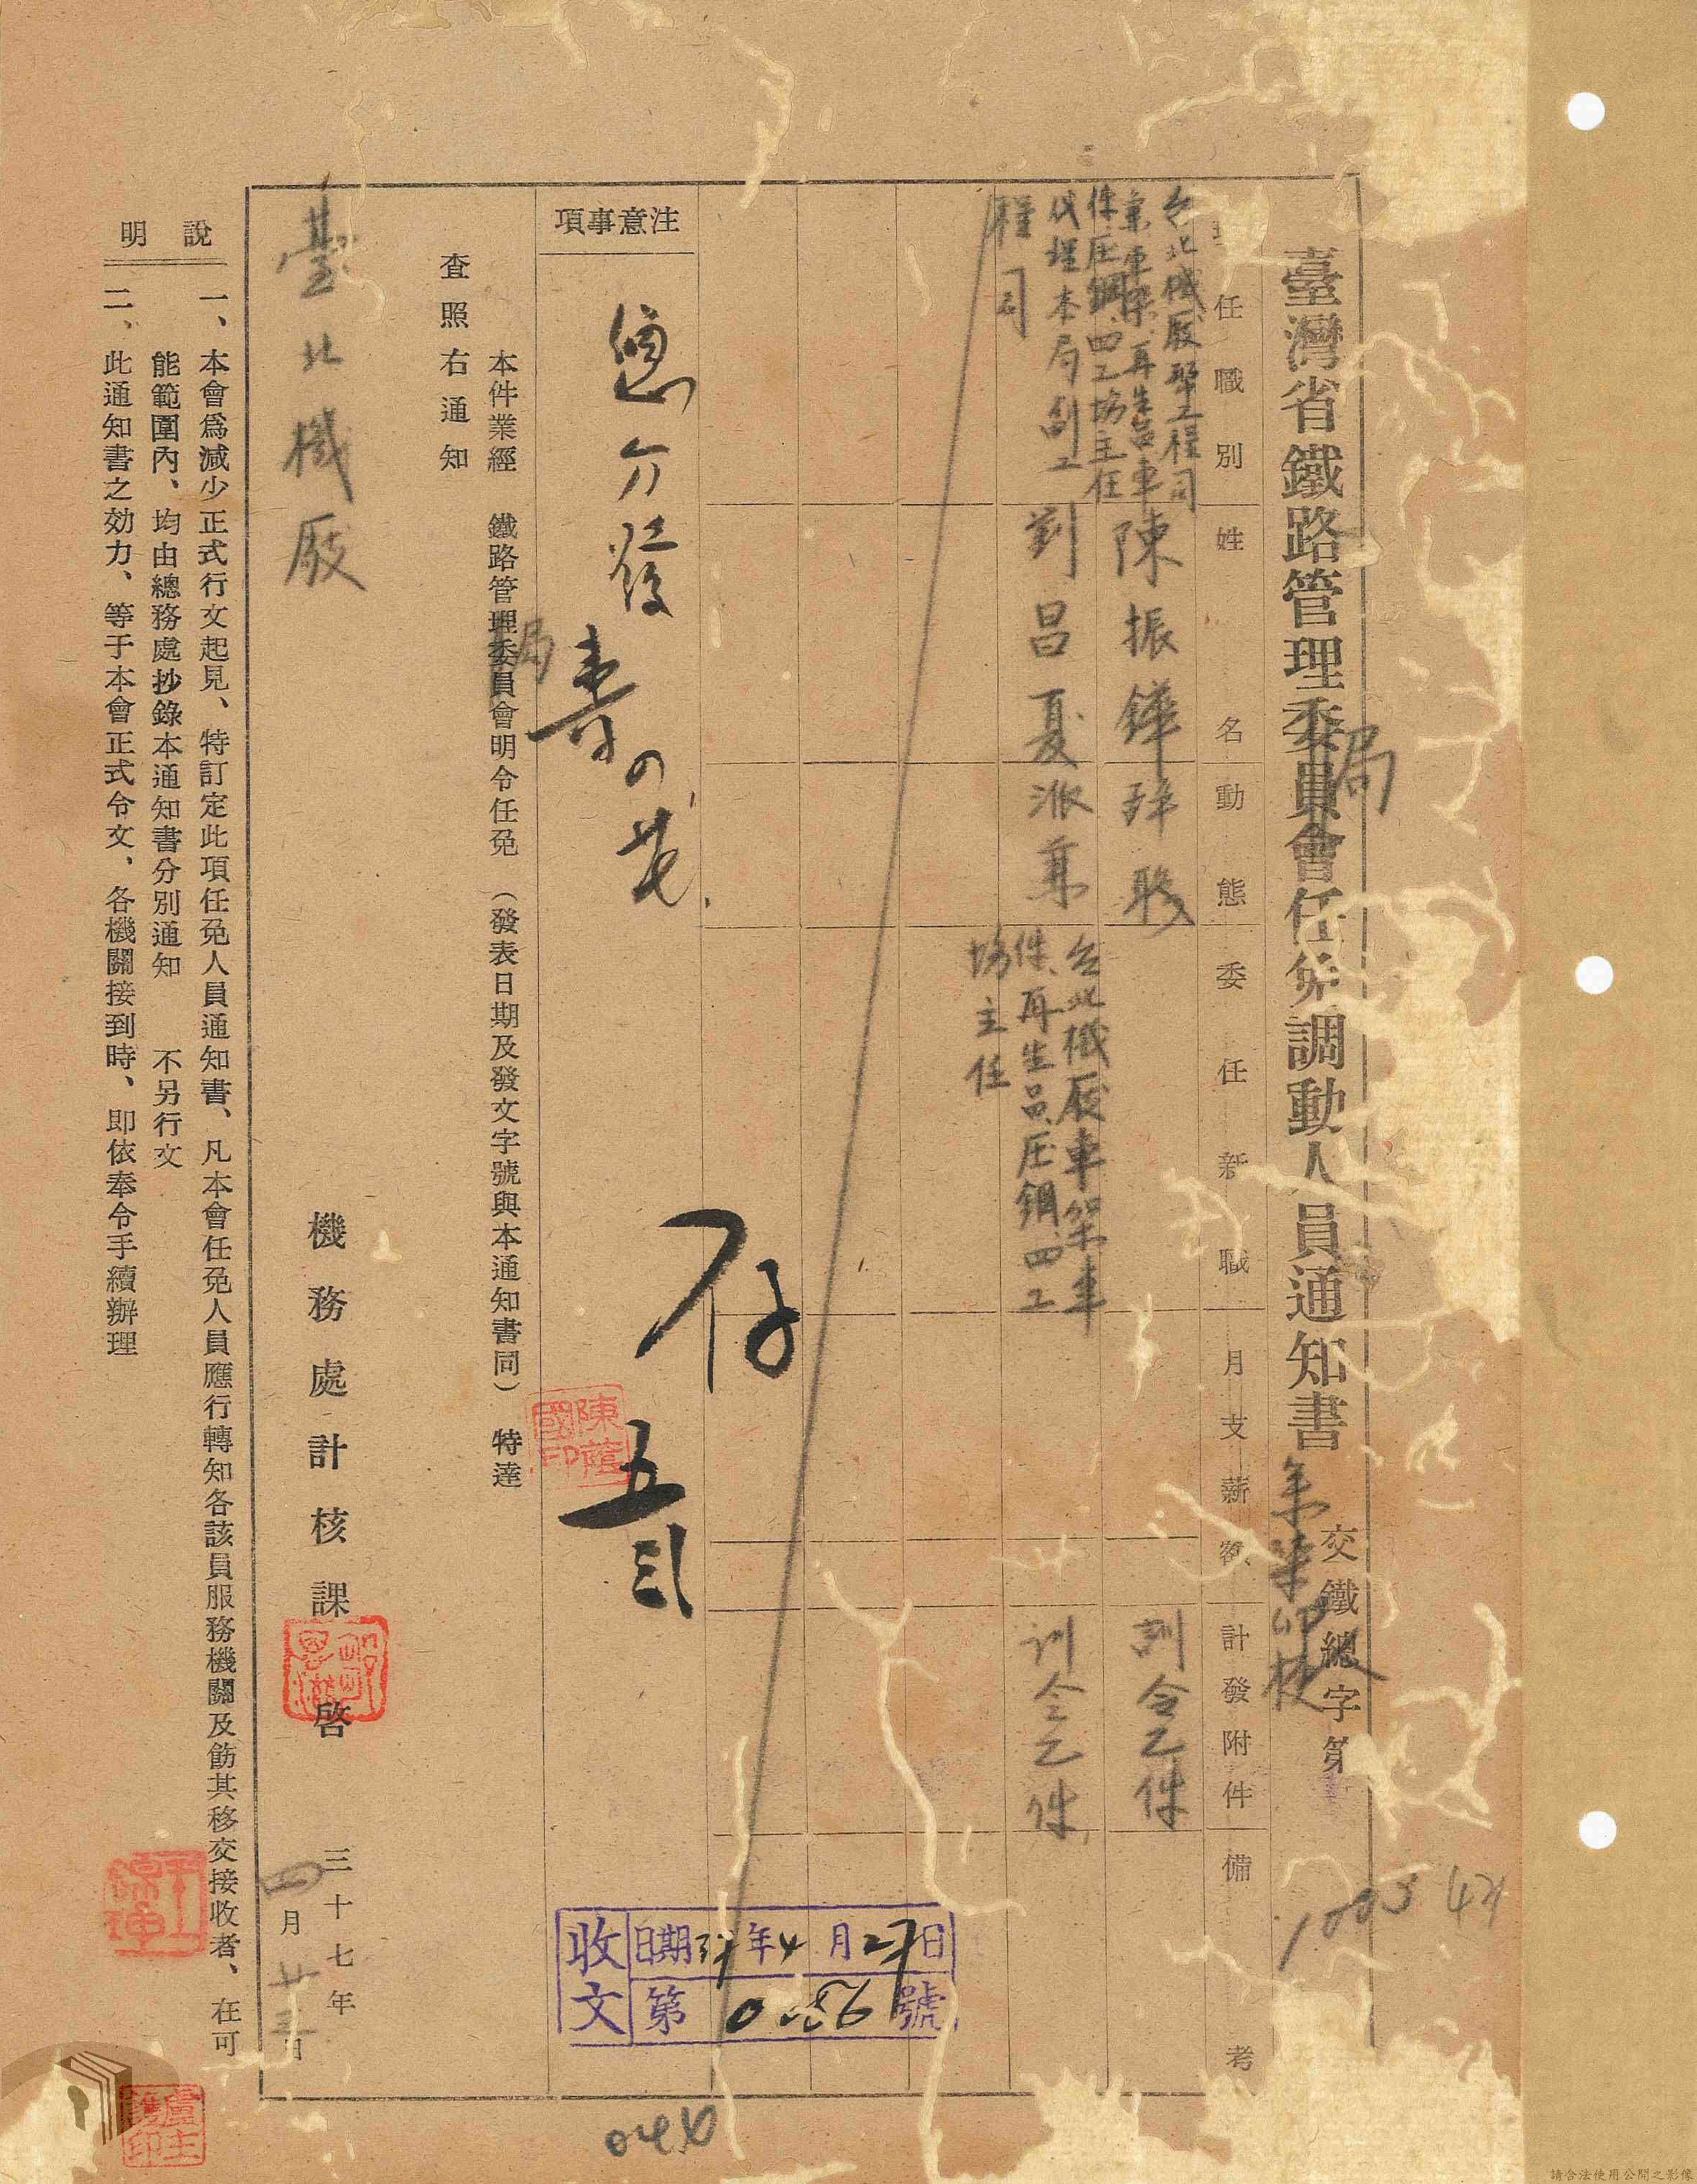 臺灣省鐵路管理委員會任免調動人員通知書
局
交鐵總字第
任職別
姓名
動態
委任新職
月支薪額
計發附件
備考
台北機厰幫工程司
兼車架、再生品車
件压鋼、四工場主任
陳振鏵
辞职
訓令乙件
代理本局副工
程司
劉昌夏
派兼
台北機厰車架車
件、再生品、压鋼、四工
場主任
訓令乙件
注意事項
存
本件業經 鐵路管理委員會明令任免 (發表日期及發文字號與本通知書同) 特達
局
查照右通知
臺北機厰
機務處計核課啓
三十七年
四月廿三日
說明
一、本會爲減少正式行文起見、特訂定此項任免人員通知書、凡本會任免人員應行轉知各該員服務機關及飭其移交接收者、在可
能範圍內、均由總務處抄錄本通知書分別通知 不另行文
二、此通知書之効力、等于本會正式令文、各機關接到時、即依奉令手續辦理
收文
日期37年4月27日
第 號
陳蔭國印
請合法使用公開之影像